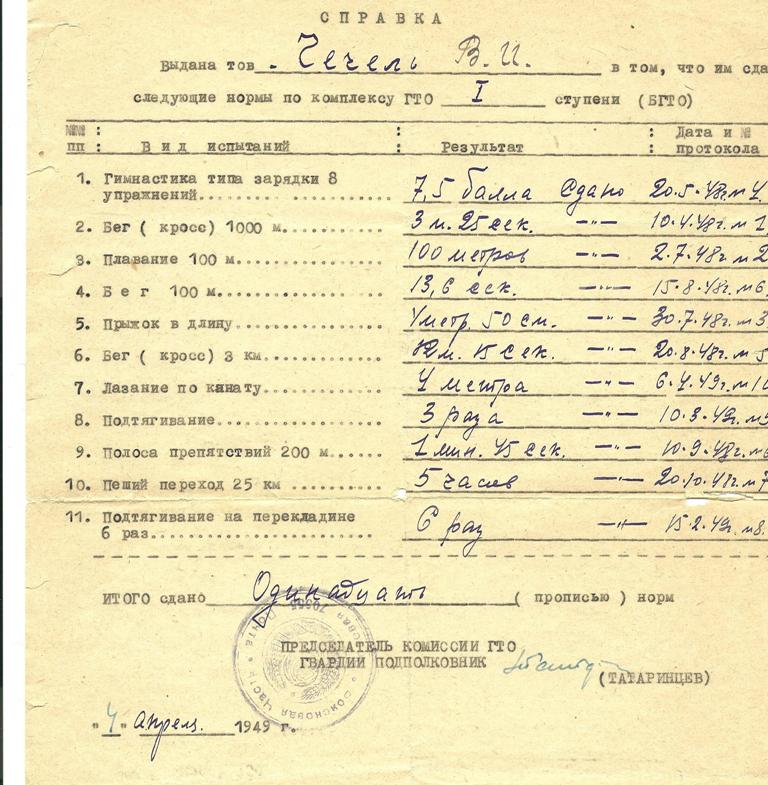 СПРАВКА
Выдана тов. Чечель В.И. в том, что им сда
следующие нормы по комплексу ГТО I ступени (БГТО)
№№ : : : Дата и №
пп : Вид испытаний : Результат : протокола
1. Гимнастика типа зарядки 8
упражнений 7,5 балла Сдано 20.5.48г. № 4.
2. Бег ( кросс) 1000 м. 3 м. 25 сек. —"— 10.4.48г. № 1.
3. Плавание 100 м. 100 метров —"— 2.7.48г. № 2
4. Бег 100 м. 13,6 сек. —"— 15.8.48г. № 6.
5. Прыжок в длину. 4 метр. 50 см. —"— 30.7.48г. № 3.
6. Бег ( кросс) 3 км. 12 м. 15 сек. —"— 20.8.48г. № 5
7. Лазание по канату. 4 метра —"— 6.4.49г. № 10
8. Подтягивание. 3 раза —"— 10.3.49г. №
9. Полоса препятствий 200 м. 1 мин. 45 сек. —"— 10.9.48г. №
10. Пеший переход 25 км 5 часов —"— 20.10.48г. № 7
11. Подтягивание на перекладине
6 раз. 6 раз —"— 15.2.49г. № 8.
ИТОГО сдано Одинадцать ( прописью ) норм
ПРЕДСЕДАТЕЛЬ КОМИССИИ ГТО
ГВАРДИИ ПОДПОЛКОВНИК
(ТАТАРИНЦЕВ)
"4" апреля. 1949 г.
Войсковая Часть Полевая Почта